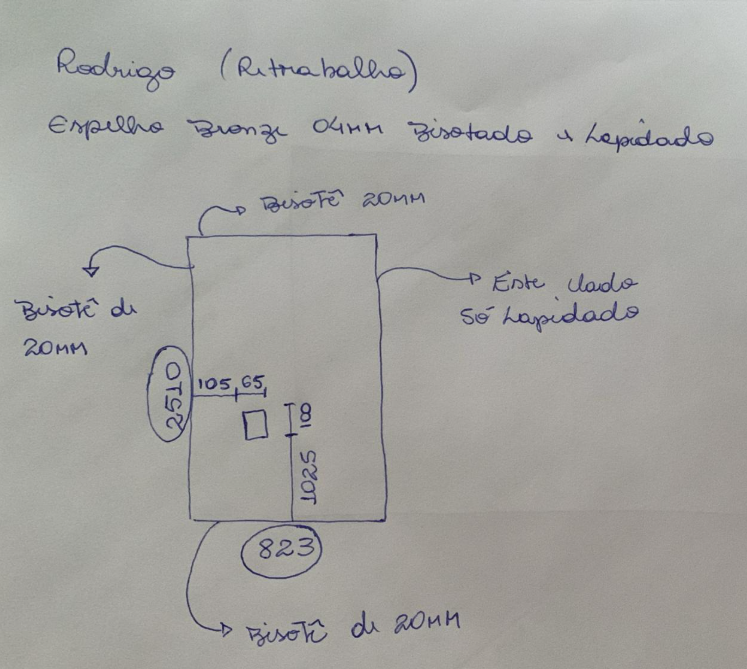 Rodrigo (Retrabalho)
Espelho Bronze 04MM Bisotado e Lapidado
Bisotê 20MM
Bisotê de
20MM
Este lado
Só Lapidado
2510
105 65
100
1025
823
Bisotê de 20MM